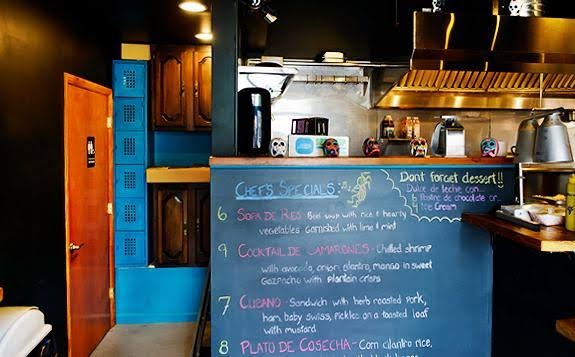 CHEF'S SPECIALS:
6 SOPA DE RES Beef soup with rice & hearty
vegetables garnished with lime & mint
9 COCKTAIL DE CAMARONES - Chilled shrimp
with avocado, onion, cilantro, mango in sweet
Gazpacho with plantain crisps
7 CUBANO - Sandwich with herb roasted pork,
ham, baby swiss, pickles on a toasted loaf
with mustard
8 PLATO DE COSECHA - Corn cilantro rice,
Dont forget dessert!!
Dulce de leche con...
6 Postre de chocolate or...
4 Ice Cream